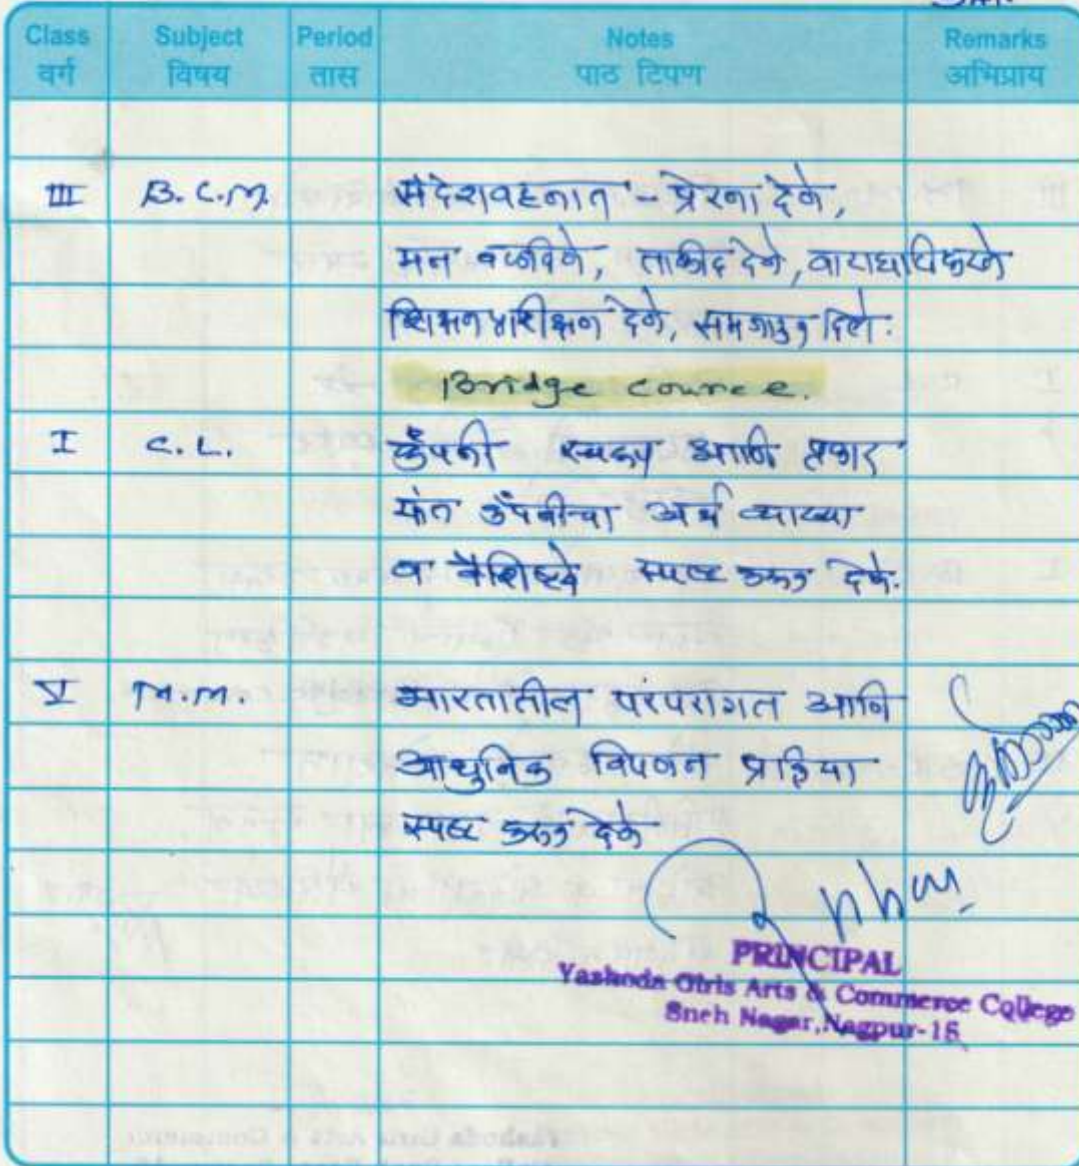 Class Subject Period Notes Remarks
वर्ग विषय तास पाठ टिपण अभिप्राय
III B.C.M. संदेशवहनात - प्रेरना देणे,
मन वळविणे, ताकीद देणे, वाटाघाटी करणे
शिक्षण प्रशिक्षण देणे, समजाऊन दिले.
Bridge Cource.
I C.L. कंपनी स्वरूप आणि प्रकार
कंपनीचा अर्थ व्याख्या
व वैशिष्ट्ये स्पष्ट करून दिले.
V M.M. भारतातील परंपरागत आणि
आधुनिक विपणन प्रक्रिया
स्पष्ट करून दिले
PRINCIPAL
Yashoda Girls Arts & Commerce College
Sneh Nagar, Nagpur-15